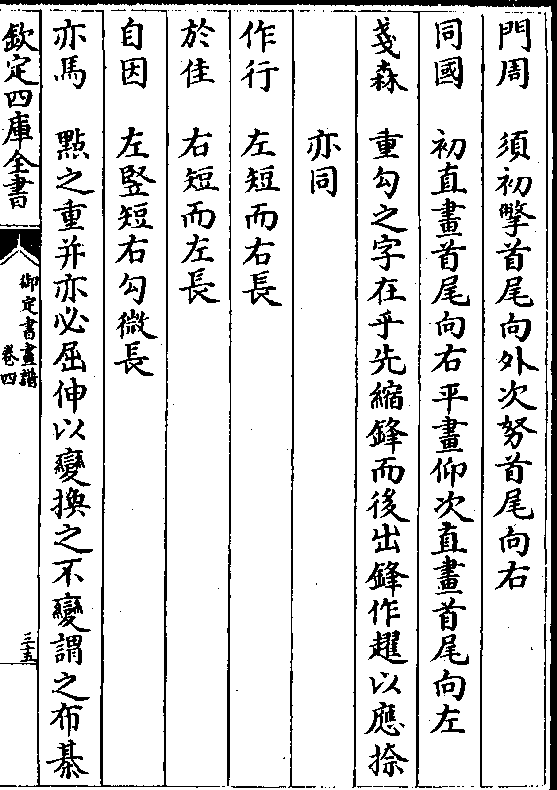 門周　須初撆首尾向外次努首尾向右
同國　初直畫首尾向右平畫仰次直畫首尾向左
戔森　重勾之字在乎先縮鋒而後出鋒作趯以應捺
亦同
作行　左短而右長
於佳　右短而左長
自因　左豎短右勾微長
亦馬　點之重并亦必屈伸以變換之不變謂之布棊
欽定四庫全書
御定書畫譜
卷四
三十五